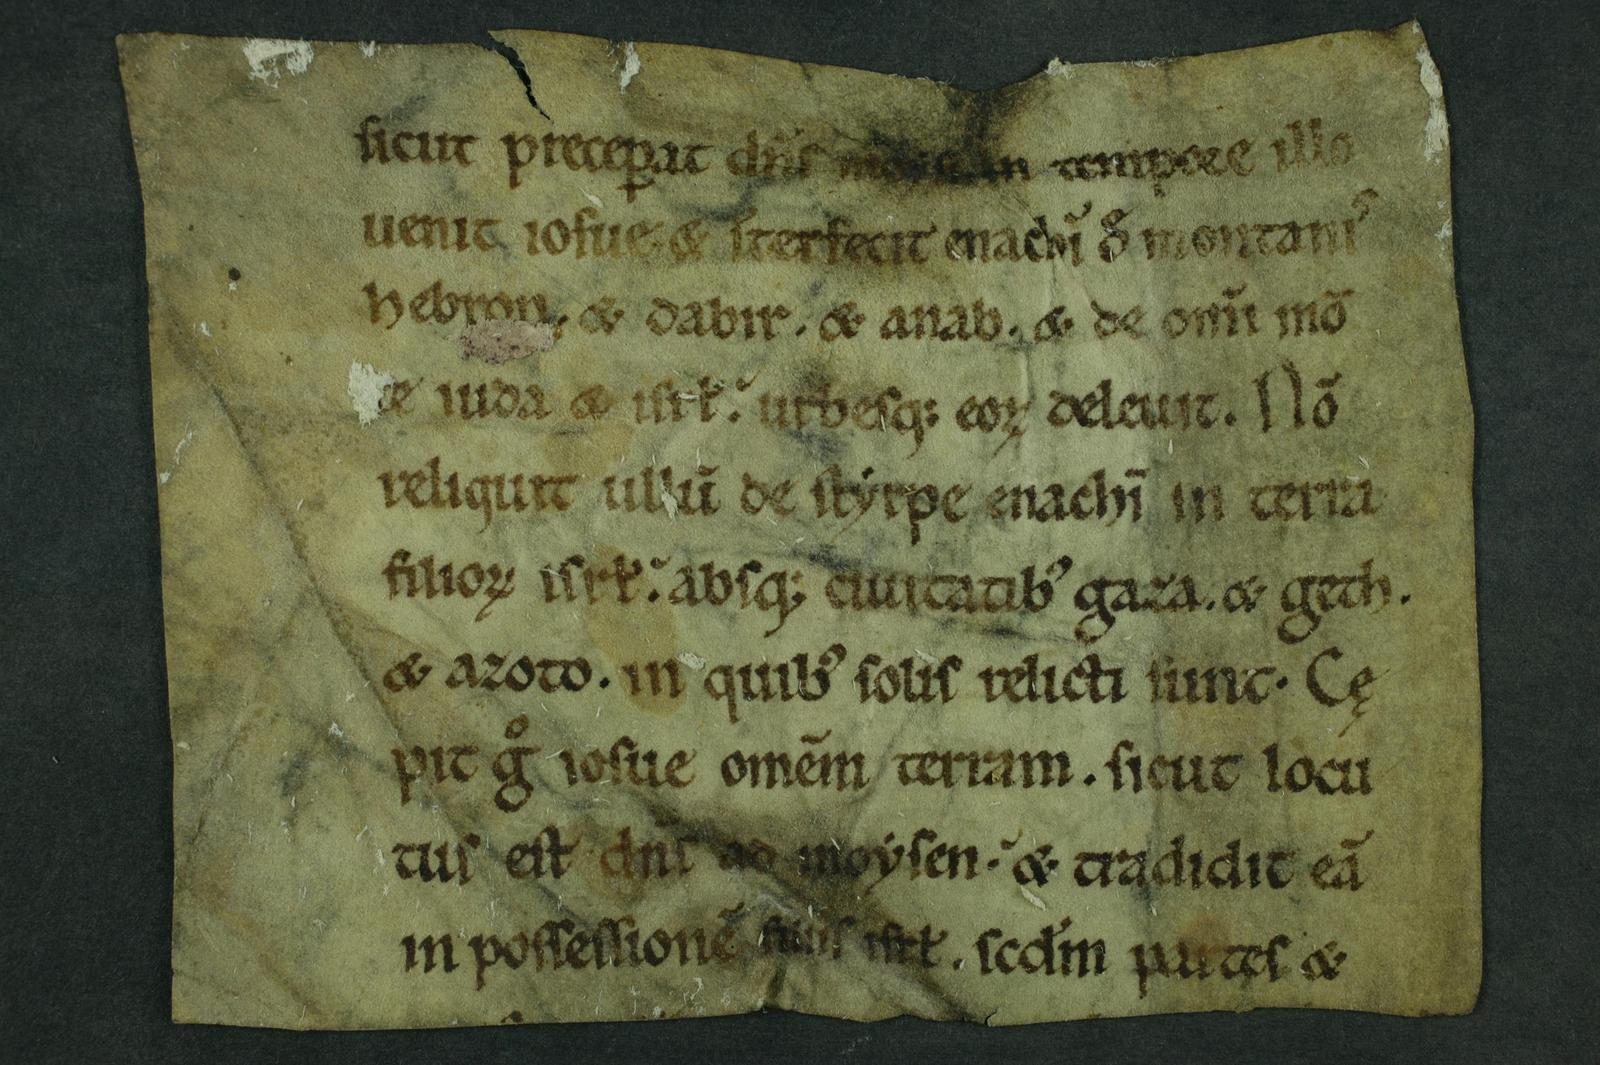 sicut preceꝑat dn̄s moysi. In tempore illo
uenit iosue. & īterfecit enachī ð montaniˢ
hebron. & dabir. & anab. & de om̄i mō
te iuda & isrł. urbesq; eoꝝ deleuit. Nō
reliquit ullū de styrpe enachī in terra
filioꝝ isrł. absq; ciuitatib᾽ gaza. & geth.
& azoto. in quib᾽ solis relicti sunt. Cę
pit gͦ iosue omēm terram. sicut locu
tus est dn̄s ad moysen. & tradidit eā
in possessionē filiis isrł. scd̄m partes &